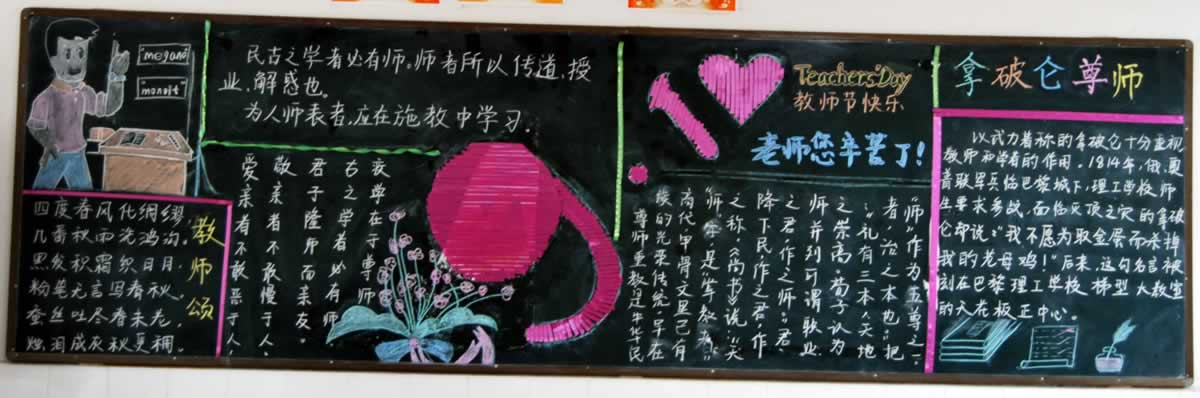 mogano
monoit
民古之学者必有师。师者所以传道,授
业,解惑也。
为人师表者,应在施教中学习.
教师颂
四度春风化绸缪,
几番秋雨洗鸿沟。
黑发积霜织日月,
粉笔无言写春秋。
蚕丝吐尽春未老,
烛泪成灰秋更稠。
疾学在于尊师
古之学者必有师
君子隆师而亲友。
敬亲者不敢慢于人.
爱亲者不敢恶于人.
Teachers' Day
教师节快乐
老师您辛苦了!
尊师重教是中华民
族的光荣传统,早在
商代甲骨文里已有
"师"
之称,《尚书》说,"天
降下民,作之君,作
之君,作之师。"君
师"并列可谓职业
之崇高。荀子认为
:"礼有三本,"天地
者,治之本也"把
"师"作为五尊之一
拿破仑尊师
以武力着称的拿破仑十分重视
教师和学者的作用。1814年,俄,奥
普联军兵临巴黎城下,理工学校师
生要求参战,面临灭顶之灾的拿破
仑却说:"我不愿为取金蛋而杀掉
我的老母鸡!"后来,这句名言被
刻在巴黎理工学校梯型大教室
的天花板正中心。